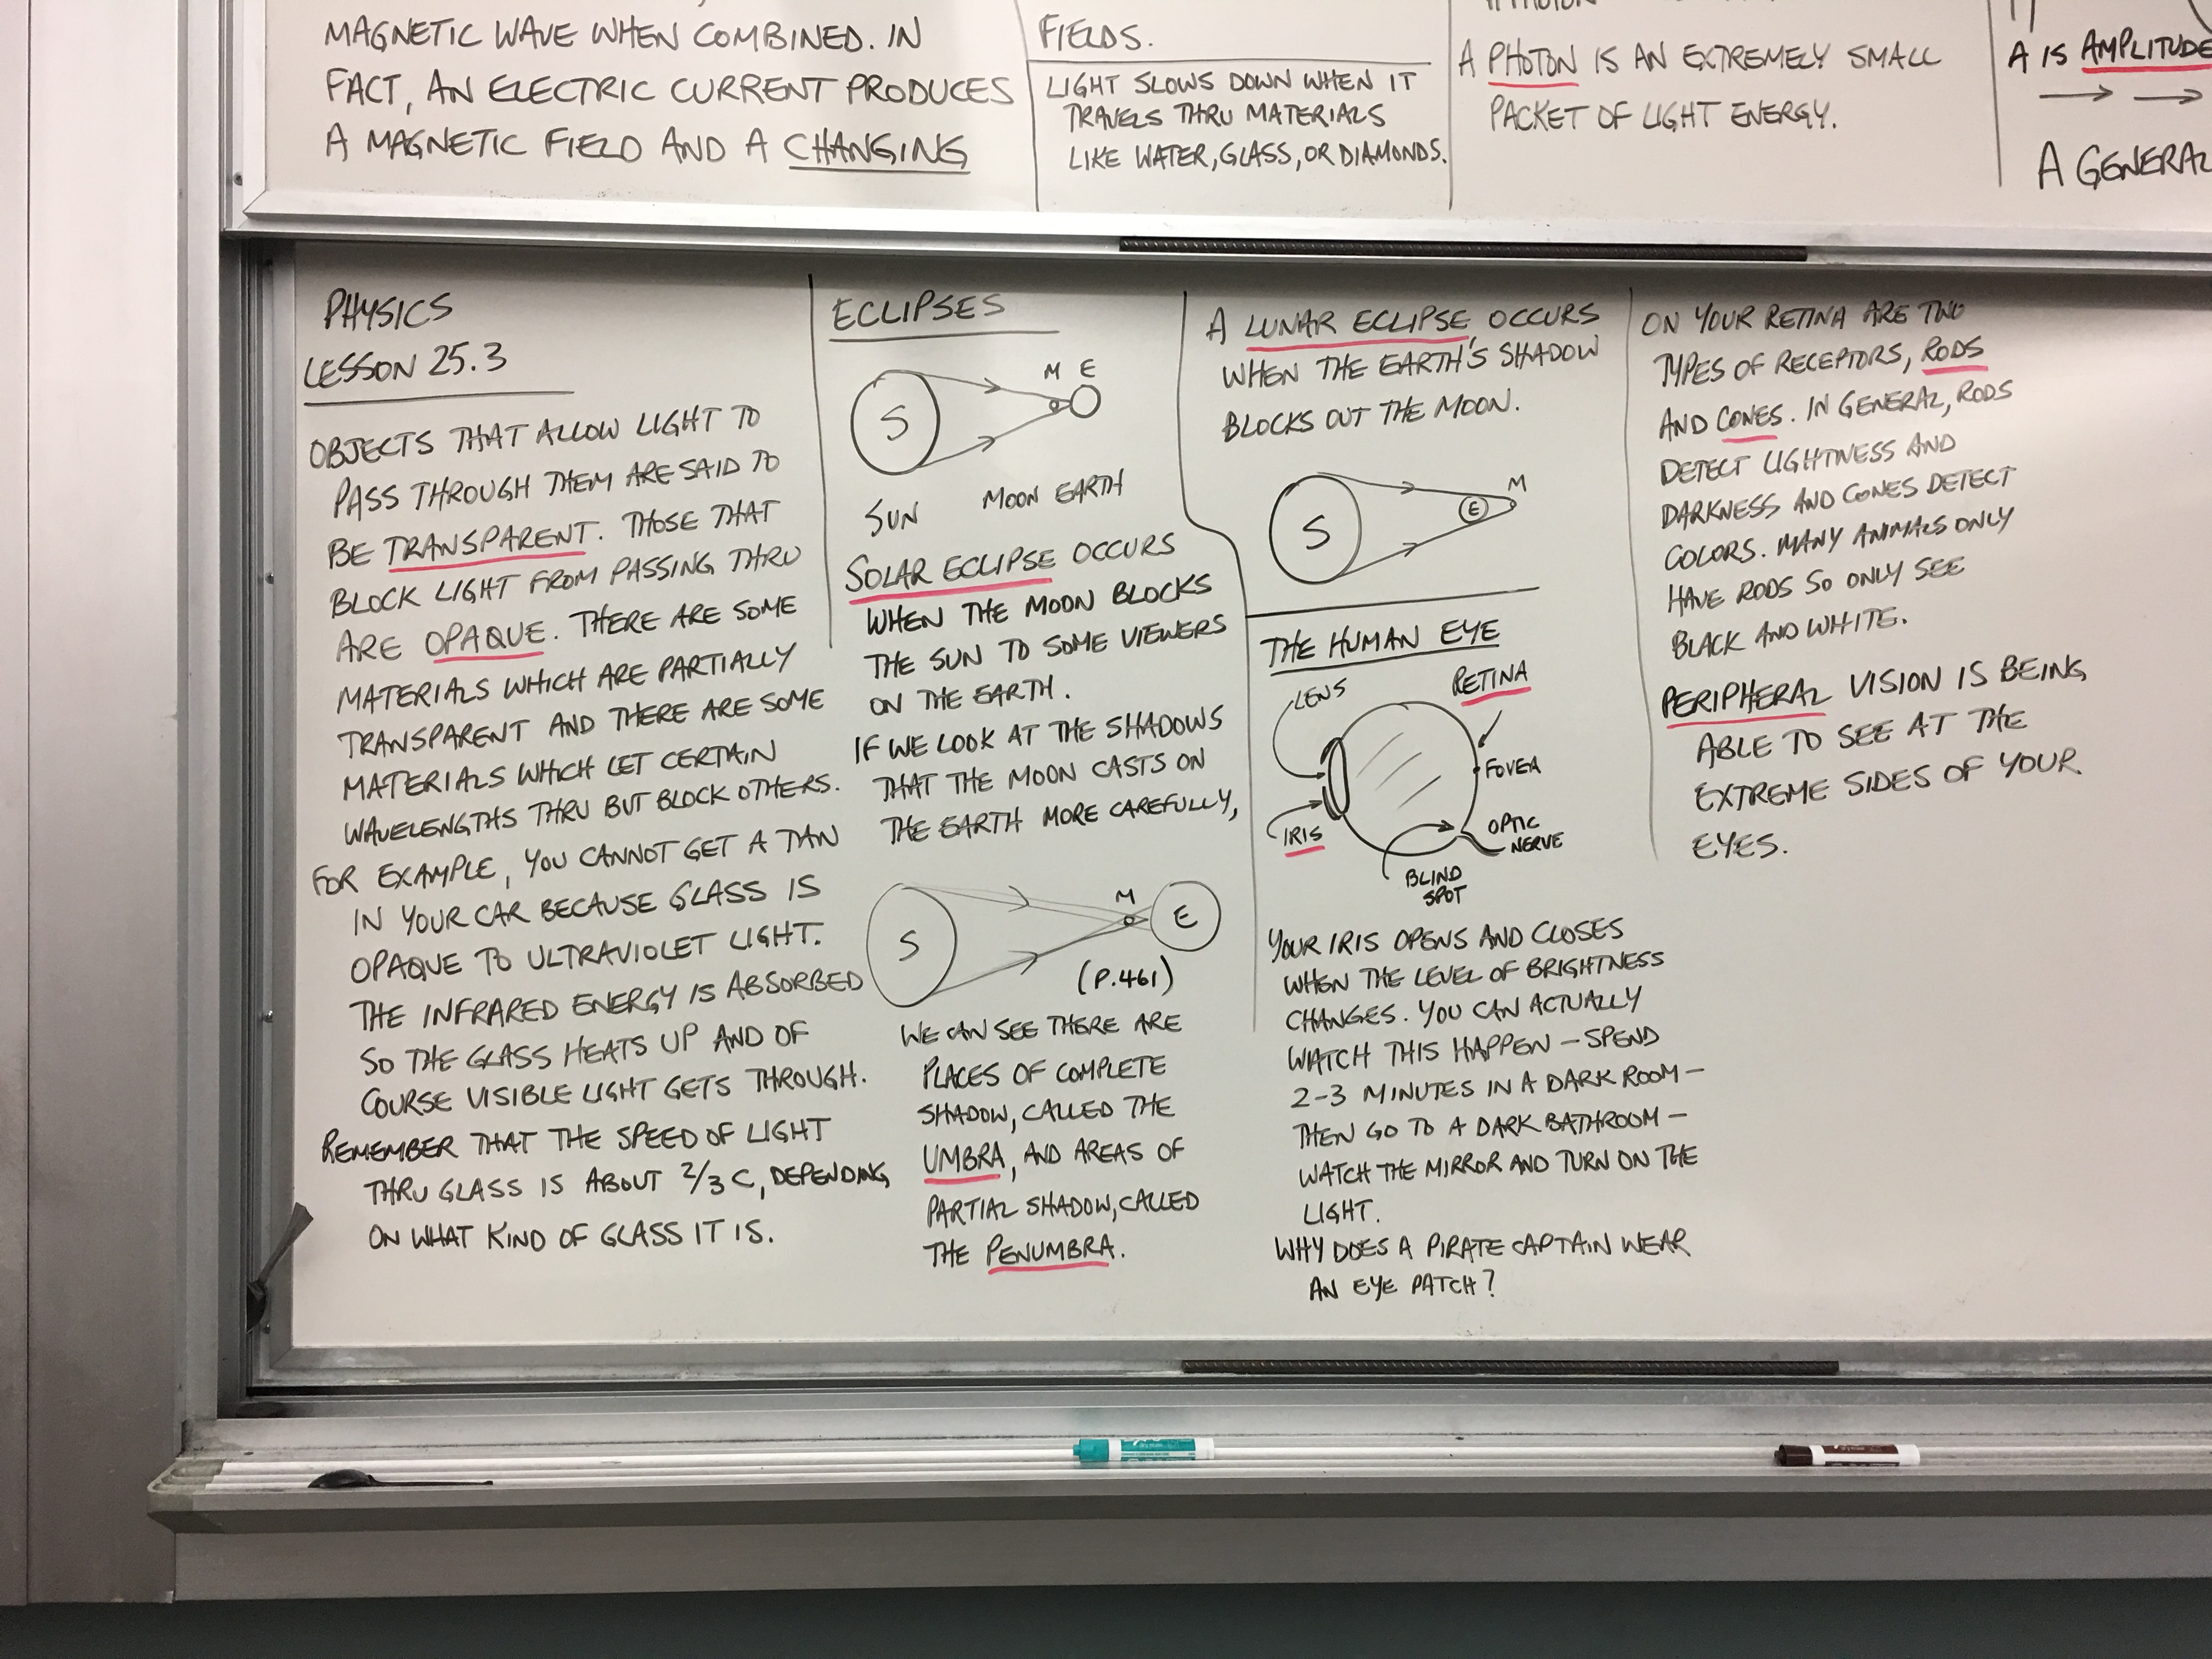 MAGNETIC WAVE WHEN COMBINED. IN
FACT, AN ELECTRIC CURRENT PRODUCES
A MAGNETIC FIELD AND A CHANGING
FIELDS.
LIGHT SLOWS DOWN WHEN IT
TRAVELS THRU MATERIALS
LIKE WATER, GLASS, OR DIAMONDS.
A PHOTON IS AN EXTREMELY SMALL
PACKET OF LIGHT ENERGY.
A IS AMPLITUDE
A GENERAL
PHYSICS
LESSON 25.3
OBJECTS THAT ALLOW LIGHT TO
PASS THROUGH THEM ARE SAID TO
BE TRANSPARENT. THOSE THAT
BLOCK LIGHT FROM PASSING THRU
ARE OPAQUE. THERE ARE SOME
MATERIALS WHICH ARE PARTIALLY
TRANSPARENT AND THERE ARE SOME
MATERIALS WHICH LET CERTAIN
WAVELENGTHS THRU BUT BLOCK OTHERS.
FOR EXAMPLE, YOU CANNOT GET A TAN
IN YOUR CAR BECAUSE GLASS IS
OPAQUE TO ULTRAVIOLET LIGHT.
THE INFRARED ENERGY IS ABSORBED
SO THE GLASS HEATS UP AND OF
COURSE VISIBLE LIGHT GETS THROUGH.
REMEMBER THAT THE SPEED OF LIGHT
THRU GLASS IS ABOUT 2/3 C, DEPENDING
ON WHAT KIND OF GLASS IT IS.
ECLIPSES
M E
S
SUN MOON EARTH
SOLAR ECLIPSE OCCURS
WHEN THE MOON BLOCKS
THE SUN TO SOME VIEWERS
ON THE EARTH.
IF WE LOOK AT THE SHADOWS
THAT THE MOON CASTS ON
THE EARTH MORE CAREFULLY,
M
S E
(P.461)
WE CAN SEE THERE ARE
PLACES OF COMPLETE
SHADOW, CALLED THE
UMBRA, AND AREAS OF
PARTIAL SHADOW, CALLED
THE PENUMBRA.
A LUNAR ECLIPSE OCCURS
WHEN THE EARTH'S SHADOW
BLOCKS OUT THE MOON.
M
S E
THE HUMAN EYE
LENS
RETINA
FOVEA
IRIS
OPTIC
NERVE
BLIND
SPOT
YOUR IRIS OPENS AND CLOSES
WHEN THE LEVEL OF BRIGHTNESS
CHANGES. YOU CAN ACTUALLY
WATCH THIS HAPPEN - SPEND
2-3 MINUTES IN A DARK ROOM -
THEN GO TO A DARK BATHROOM -
WATCH THE MIRROR AND TURN ON THE
LIGHT.
WHY DOES A PIRATE CAPTAIN WEAR
AN EYE PATCH?
ON YOUR RETINA ARE TWO
TYPES OF RECEPTORS, RODS
AND CONES. IN GENERAL, RODS
DETECT LIGHTNESS AND
DARKNESS AND CONES DETECT
COLORS. MANY ANIMALS ONLY
HAVE RODS SO ONLY SEE
BLACK AND WHITE.
PERIPHERAL VISION IS BEING
ABLE TO SEE AT THE
EXTREME SIDES OF YOUR
EYES.